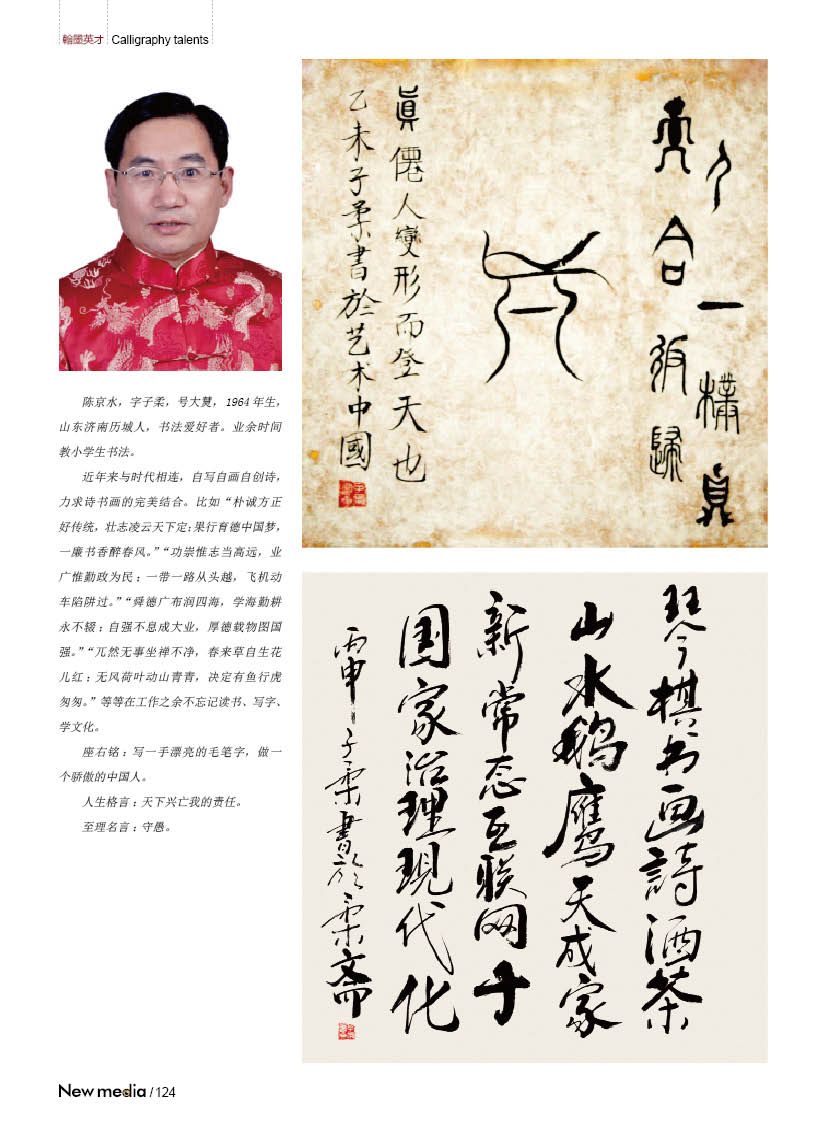 翰墨英才 Calligraphy talents
陈京水，字子柔，号大，1964 年生，
山东济南历城人，书法爱好者。业余时间
教小学生书法。
近年来与时代相连，自写自画自创诗，
力求诗书画的完美结合。比如“朴诚方正
好传统，壮志凌云天下定；果行育德中国梦，
一廉书香醉春风。”“功崇惟志当高远，业
广惟勤政为民；一带一路从头越，飞机动
车陷阱过。”“舜德广布润四海，学海勤耕
永不辍；自强不息成大业，厚德载物图国
强。”“兀然无事坐禅不净，春来草自生花
儿红；无风荷叶动山青青，决定有鱼行虎
匆匆。”等等在工作之余不忘记读书、写字、
学文化。
座右铭：写一手漂亮的毛笔字，做一
个骄傲的中国人。
人生格言：天下兴亡我的责任。
至理名言：守愚。
一
合
眞僊人變形而登天也
乙未子柔書於艺术中國
琴棋书画詩酒茶
山水鹅鹰天成家
新常态互联网+
国家治理現代化
丙申子柔書於柔斋
New media / 124